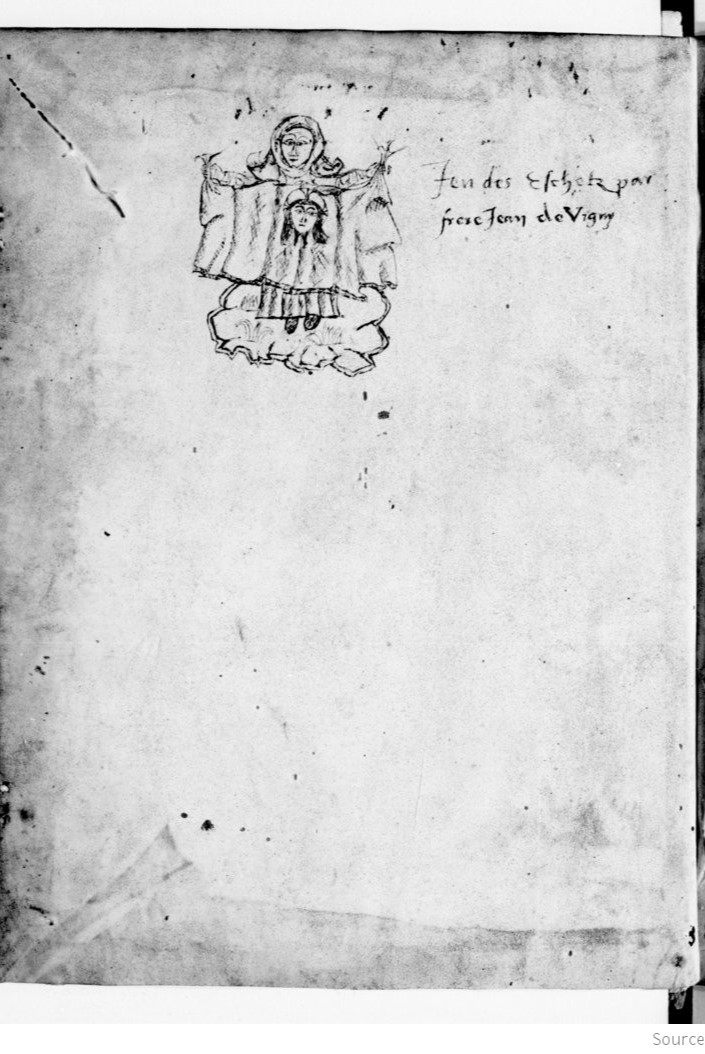 Jeu des Eschetz par
frere Jean de Vigny
3
Source